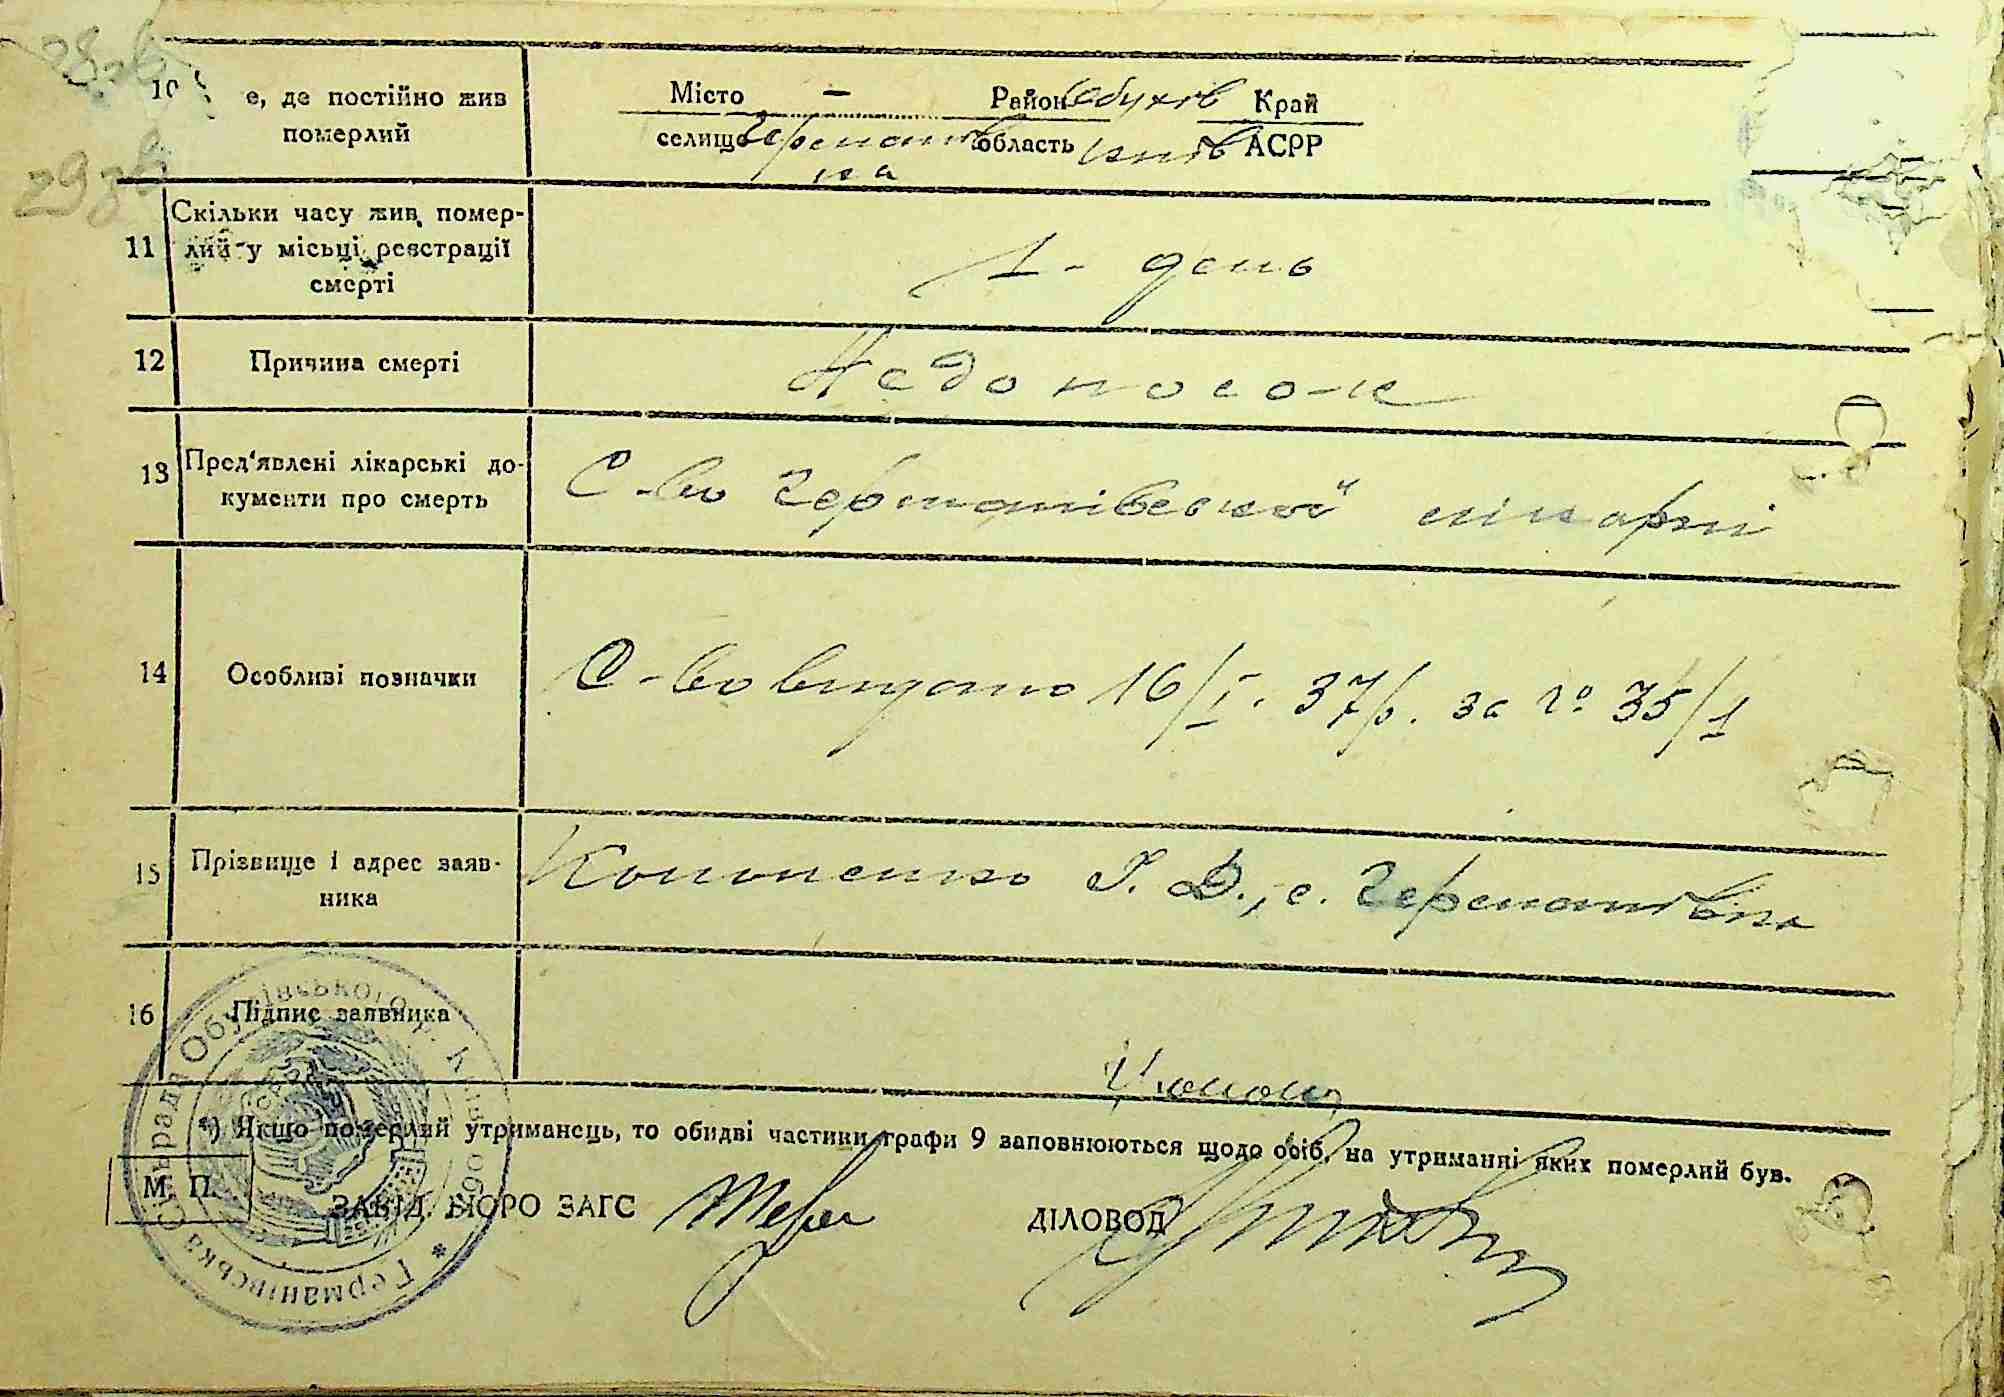 28зв
29зв
10 е, де постійно жив
померлий
Місто – Район Обухів Край
селище Германів область Київ АСРР
ка
11 Скільки часу жив помер-
лий у місьці реєстрації
смерті
1 - день
12 Причина смерті
Недоносок
13 Пред'явлені лікарські до-
кументи про смерть
С-во Германівської лікарні
14 Особливі позначки
С-во видано 16/I. 37р. за № 35/1
15 Прізвище і адрес заяв-
ника
Кононенко І. Д., с. Германівка
16 Підпис заявника
Конон
*) Якщо померлий утриманець, то обидві частини графи 9 заповнюються щодо осіб, на утриманні яких померлий був.
М. П.
ЗАВІД. БЮРО ЗАГС
ДІЛОВОД
* Германівська Сільрада Обухівського р. Київ. Обл.